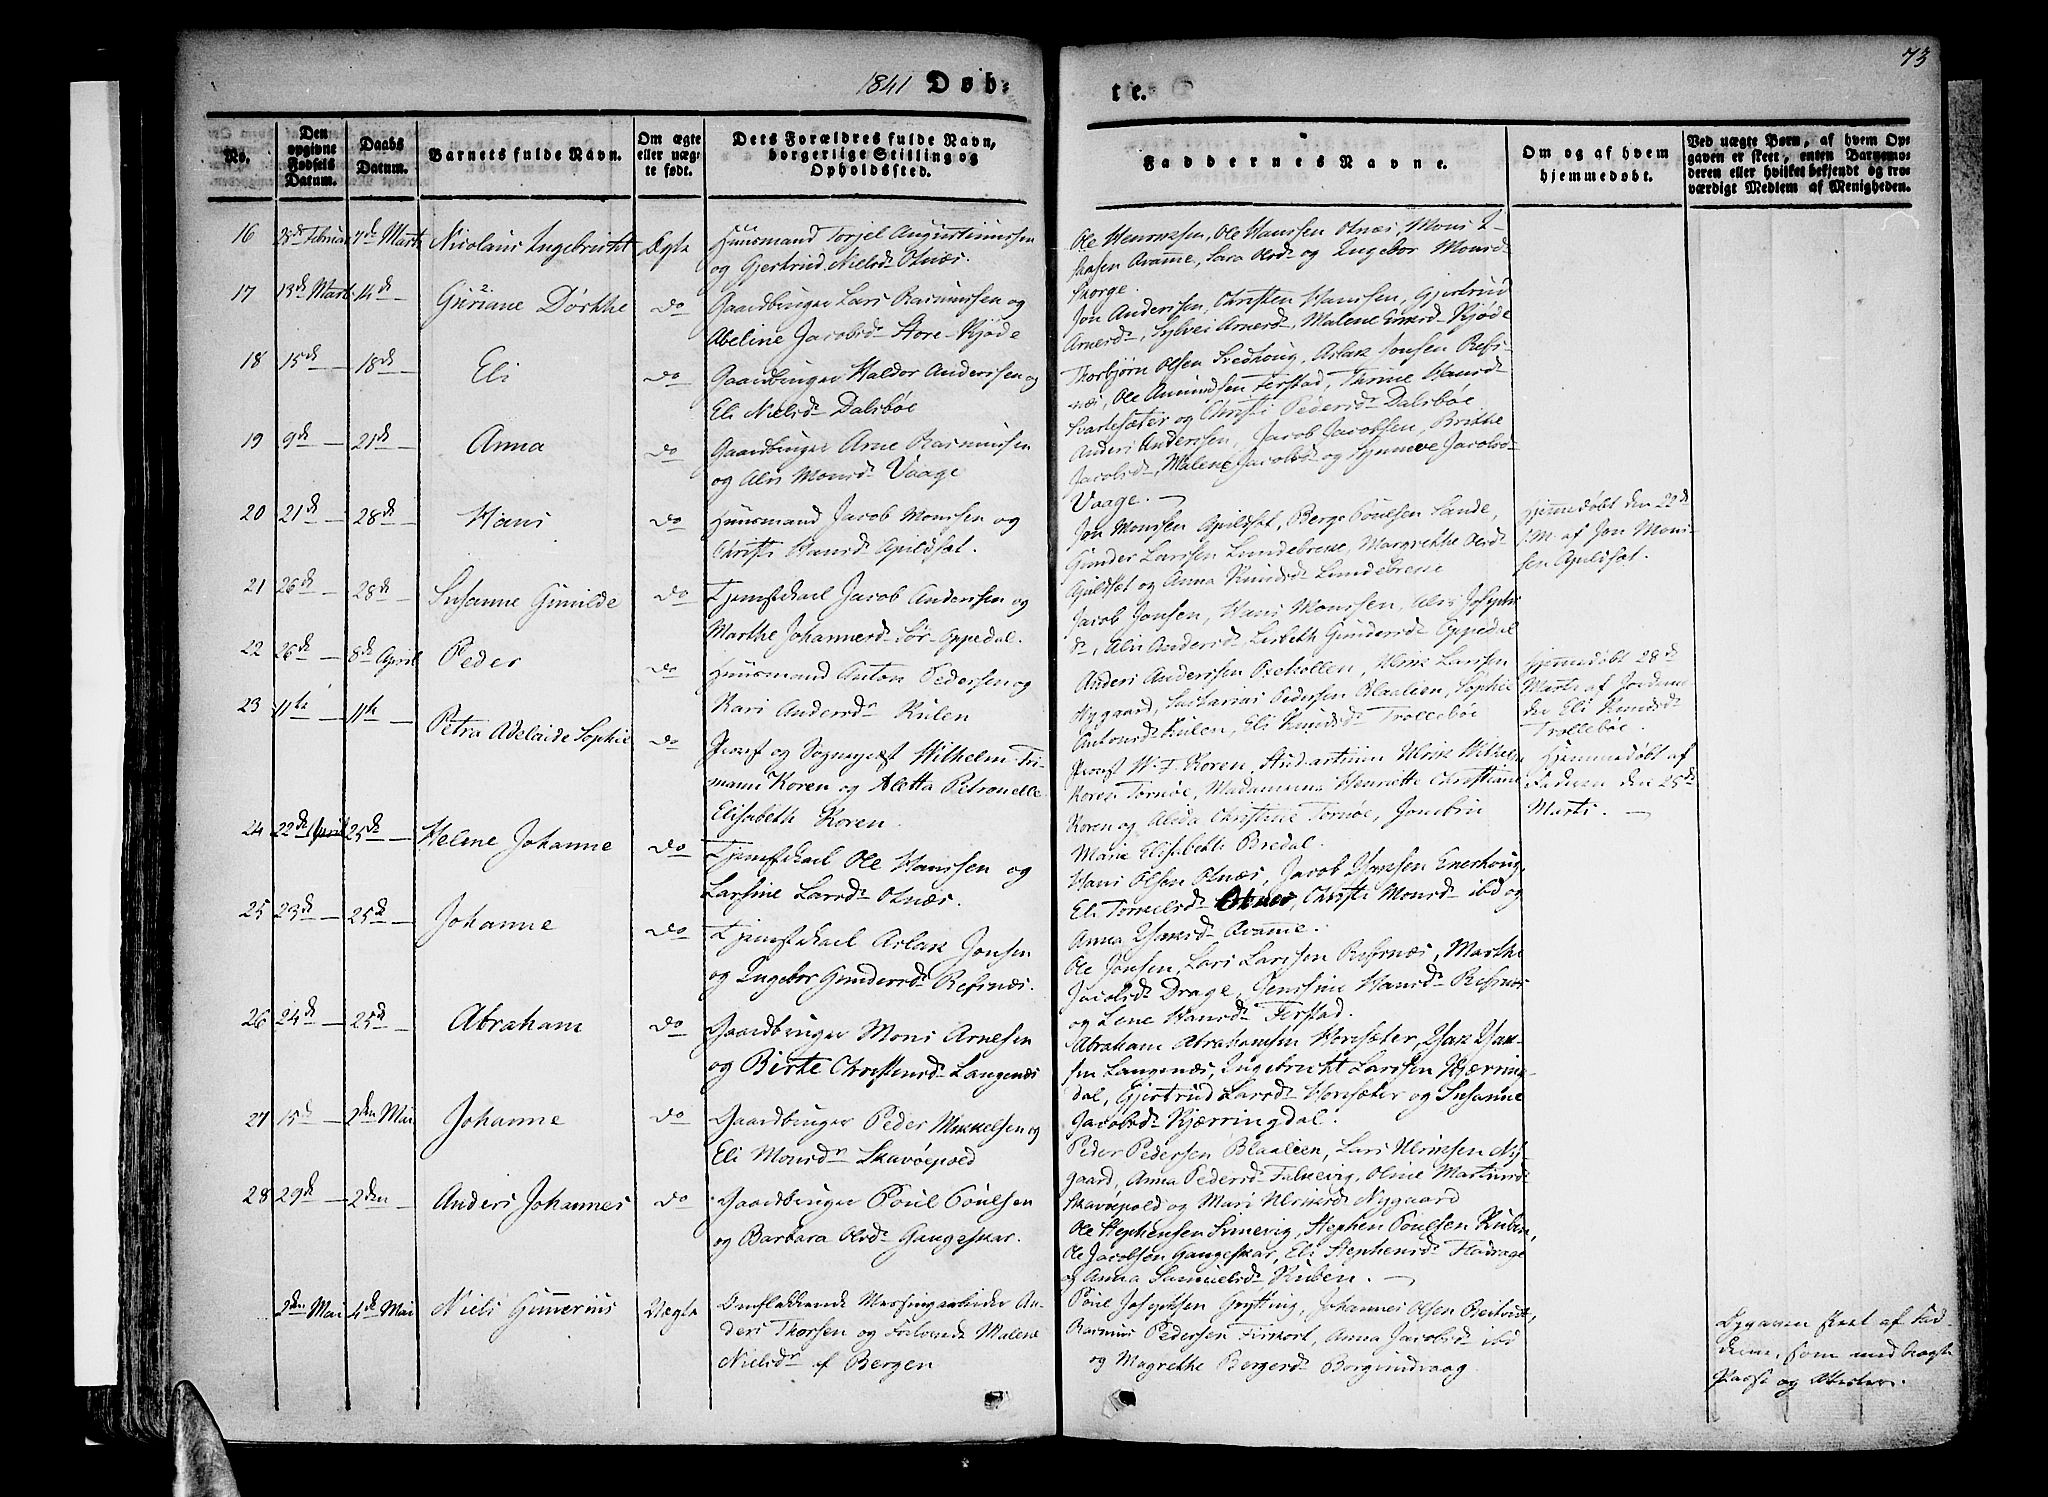 73
1841 Døb-
te.
No.
Den opgivne Fødsels Datum.
Daabs Datum.
Barnets fulde Navn.
Om ægte eller uægte født.
Dets Forældres fulde Navn, borgerlige Stilling og Opholdssted.
Faddernes Navne.
Om og af hvem hjemmedøbt.
Ved uægte Børn, af hvem Opgaven er skeet, enten Barnemoderen eller hvilket bekjendt og troværdigt Medlem af Menigheden.
16 28de Februar 7de Marts Nicolaus Ingebrictht Ægte
Huusmand Torjel Augustinussen
og Gjertrud Nielsdr Otnæs.
Ole Henriksen, Ole Hanssen Otnæs, Mons I-
saksen Avamme, Sara Olsdr og Ingebor Monsdr
Skorge.
17 13de Marts 14de — Guriane Dorthe do
Gaardbruger Lars Rasmussen og
Abeline Jacobsdr Store-Kjøde
Jon Anderssen, Christen Hanssen, Gjertrud
Arnesdr, Sylvei Arnesdr, Malene Enersdr Kjøde
18 15de — 18de — Eli do
Gaardbruger Haldor Anderssen og
Eli Nielsdr Dalsbøe
Thorbjørn Olsen Svedhoug, Aslak Jonsen Refs-
næs, Ole Amundsen Ferstad, Thrine Hansdr
Svartesæter og Christi Pedersdr Dalsbøe
19 9de — 21de — Anna do
Gaardbruger Arne Rasmussen
og Alis Monsdr Vaage
Anders Anderssen, Jacob Jacobsen, Brithe
Jacobsdr, Malene Jacobsdr og Synneve Jacobsdr
Vaage. —
20 21de — 28de — Hans do
Huusmand Jacob Monssen og
Christi Hansdr Apildsæt.
Jon Monssen Apildsæt, Berge Poulsen Lunde,
Gunder Larssen Lundebrekke, Margrethe Olsdr
Apildsæt og Anna Knudsdr Lundebrekke
Hjemmedøbt den 22de
s. M. af Jon Mons-
sen Apildsæt.
21 26de — 28de — Susanne Gunilde do
Tjenestekarl Jacob Anderssen og
Marthe Johannesdr Sør-Oppedal.
Jacob Jonsen, Hans Monssen, Alis Josephs-
dr, Alis Andersdr Lisbeth Gundersdr Oppedal
22 26de — 8de April Peder do
Huusmand Anton Pedersen og
Kari Andersdr Kulen
Anders Anderssen Oxekollen, Ulrik Larssen
Nygaard, Zacharias Pedersen Blaalien, Sophie
Antonsdr Kulen, Eli Knudsdr Trollebøe
Hjemmedøbt 28de
Marts af Jordemo-
der Eli Knudsdr
Trollebøe.
23 11te — 11te — Petra Adelaide Sophie do
Provst og Sognepræst Wilhelm Fri-
mann Koren og Aletta Petronelle
Elisabeth Koren
Provst W. F. Koren, Stud. artium Ulrik Wilhelm
Koren Tornøe, Madamme Henrette Christiane
Koren og Alida Christine Tornøe, Jomfru
Marie Elisabeth Bredal.
Hjemmedøbt af
Faderen den 25de
Marts. —
24 22de April 25de — Helene Johanne do
Tjenestekarl Ole Hanssen og
Larsine Larsdr Otnæs.
Hans Olsen Otnæs, Jacob Isaksen Enerhoug,
Eli Torkelsdr Otnæs, Christi Monsdr ibd og
Anna Isaksdr Avamme.
25 23de — 25de — Johanne do
Tjenestekarl Aslak Jonsen
og Ingebor Gundersdr Refsnæs.
Ole Jonsen, Lars Larssen Refsnæs, Marthe
Jacobsdr Drage, Jenssine Hansdr Refsnæs
og Lene Hansdr Ferstad.
26 24de — 25de — Abraham do
Gaardbruger Mons Arnesen
og Birte Christensdr Langenæs
Abraham Abrahamsen Hovesæter, Isak Isak-
sen Langenæs, Ingebricht Larssen Kjærring-
dal, Gjertrud Larsdr Hovesæter og Susanne
Jacobsdr Kjærringdal.
27 15de — 2den Mai Johanne do
Gaardbruger Peder Mikkelsen og
Eli Monsdr Skavøepold
Peder Pedersen Blaalien, Lars Ulriksen Ny-
gaard, Anna Pedersdr Falkevig, Oline Martinusdr
Skavøepold og Mari Ulriksdr Nygaard
28 29de — 2den — Anders Johannes do
Gaardbruger Poul Poulsen
og Barbara Olsdr Gangeskar.
Ole Stephensen Svinevig, Stephen Poulsen Kuben,
Ole Jacobsen Gangeskar, Eli Stephensdr Flodrage
og Anna Samuelsdr Kuben. —
2den Mai 4de Mai Niels Gunerius Uægte
Omflakkende Messingarbeider An-
ders Thorsen og Forlovede Malene
Nielsdr af Bergen
Poul Josephsen Grytting, Johannes Olsen Reitvik,
Rasmus Pedersen Fiskort, Anna Jacobsdr ibd
og Magrethe Bergersdr Borgundvaag
Opgaven skeet af Fad-
derne, som medbragte
Passe og Attester.